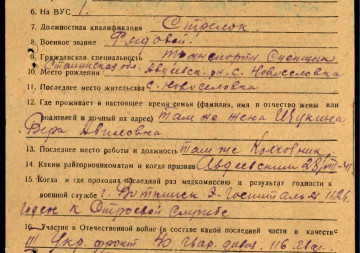 6. На ВУС 1.
7. Должностная квалификация Стрелок.
8. Военное звание Рядовой.
9. Гражданская специальность
Сталинская обл.
10. Место рождения с. Новоселовка
11. Последнее место жительства с. Новоселовка
12. Где проживает в настоящее время семья (фамилия, имя и отчество жены или
родителей и точный их адрес) там же жена Щукина
Вера
13. Последнее место работы и должность там же Колхозник
14. Каким райгорвоенкоматом и когда призван Авдеевским 28
15. Когда и где проходил последний раз медкомиссию и результат годности к
военной службе г. э-госпиталь 1626
годен к строевой службе
16. Участие в Отечественной войне (в составе какой последней части и в качестве
III Укр. фронт 40 гвар. дивиз. 116